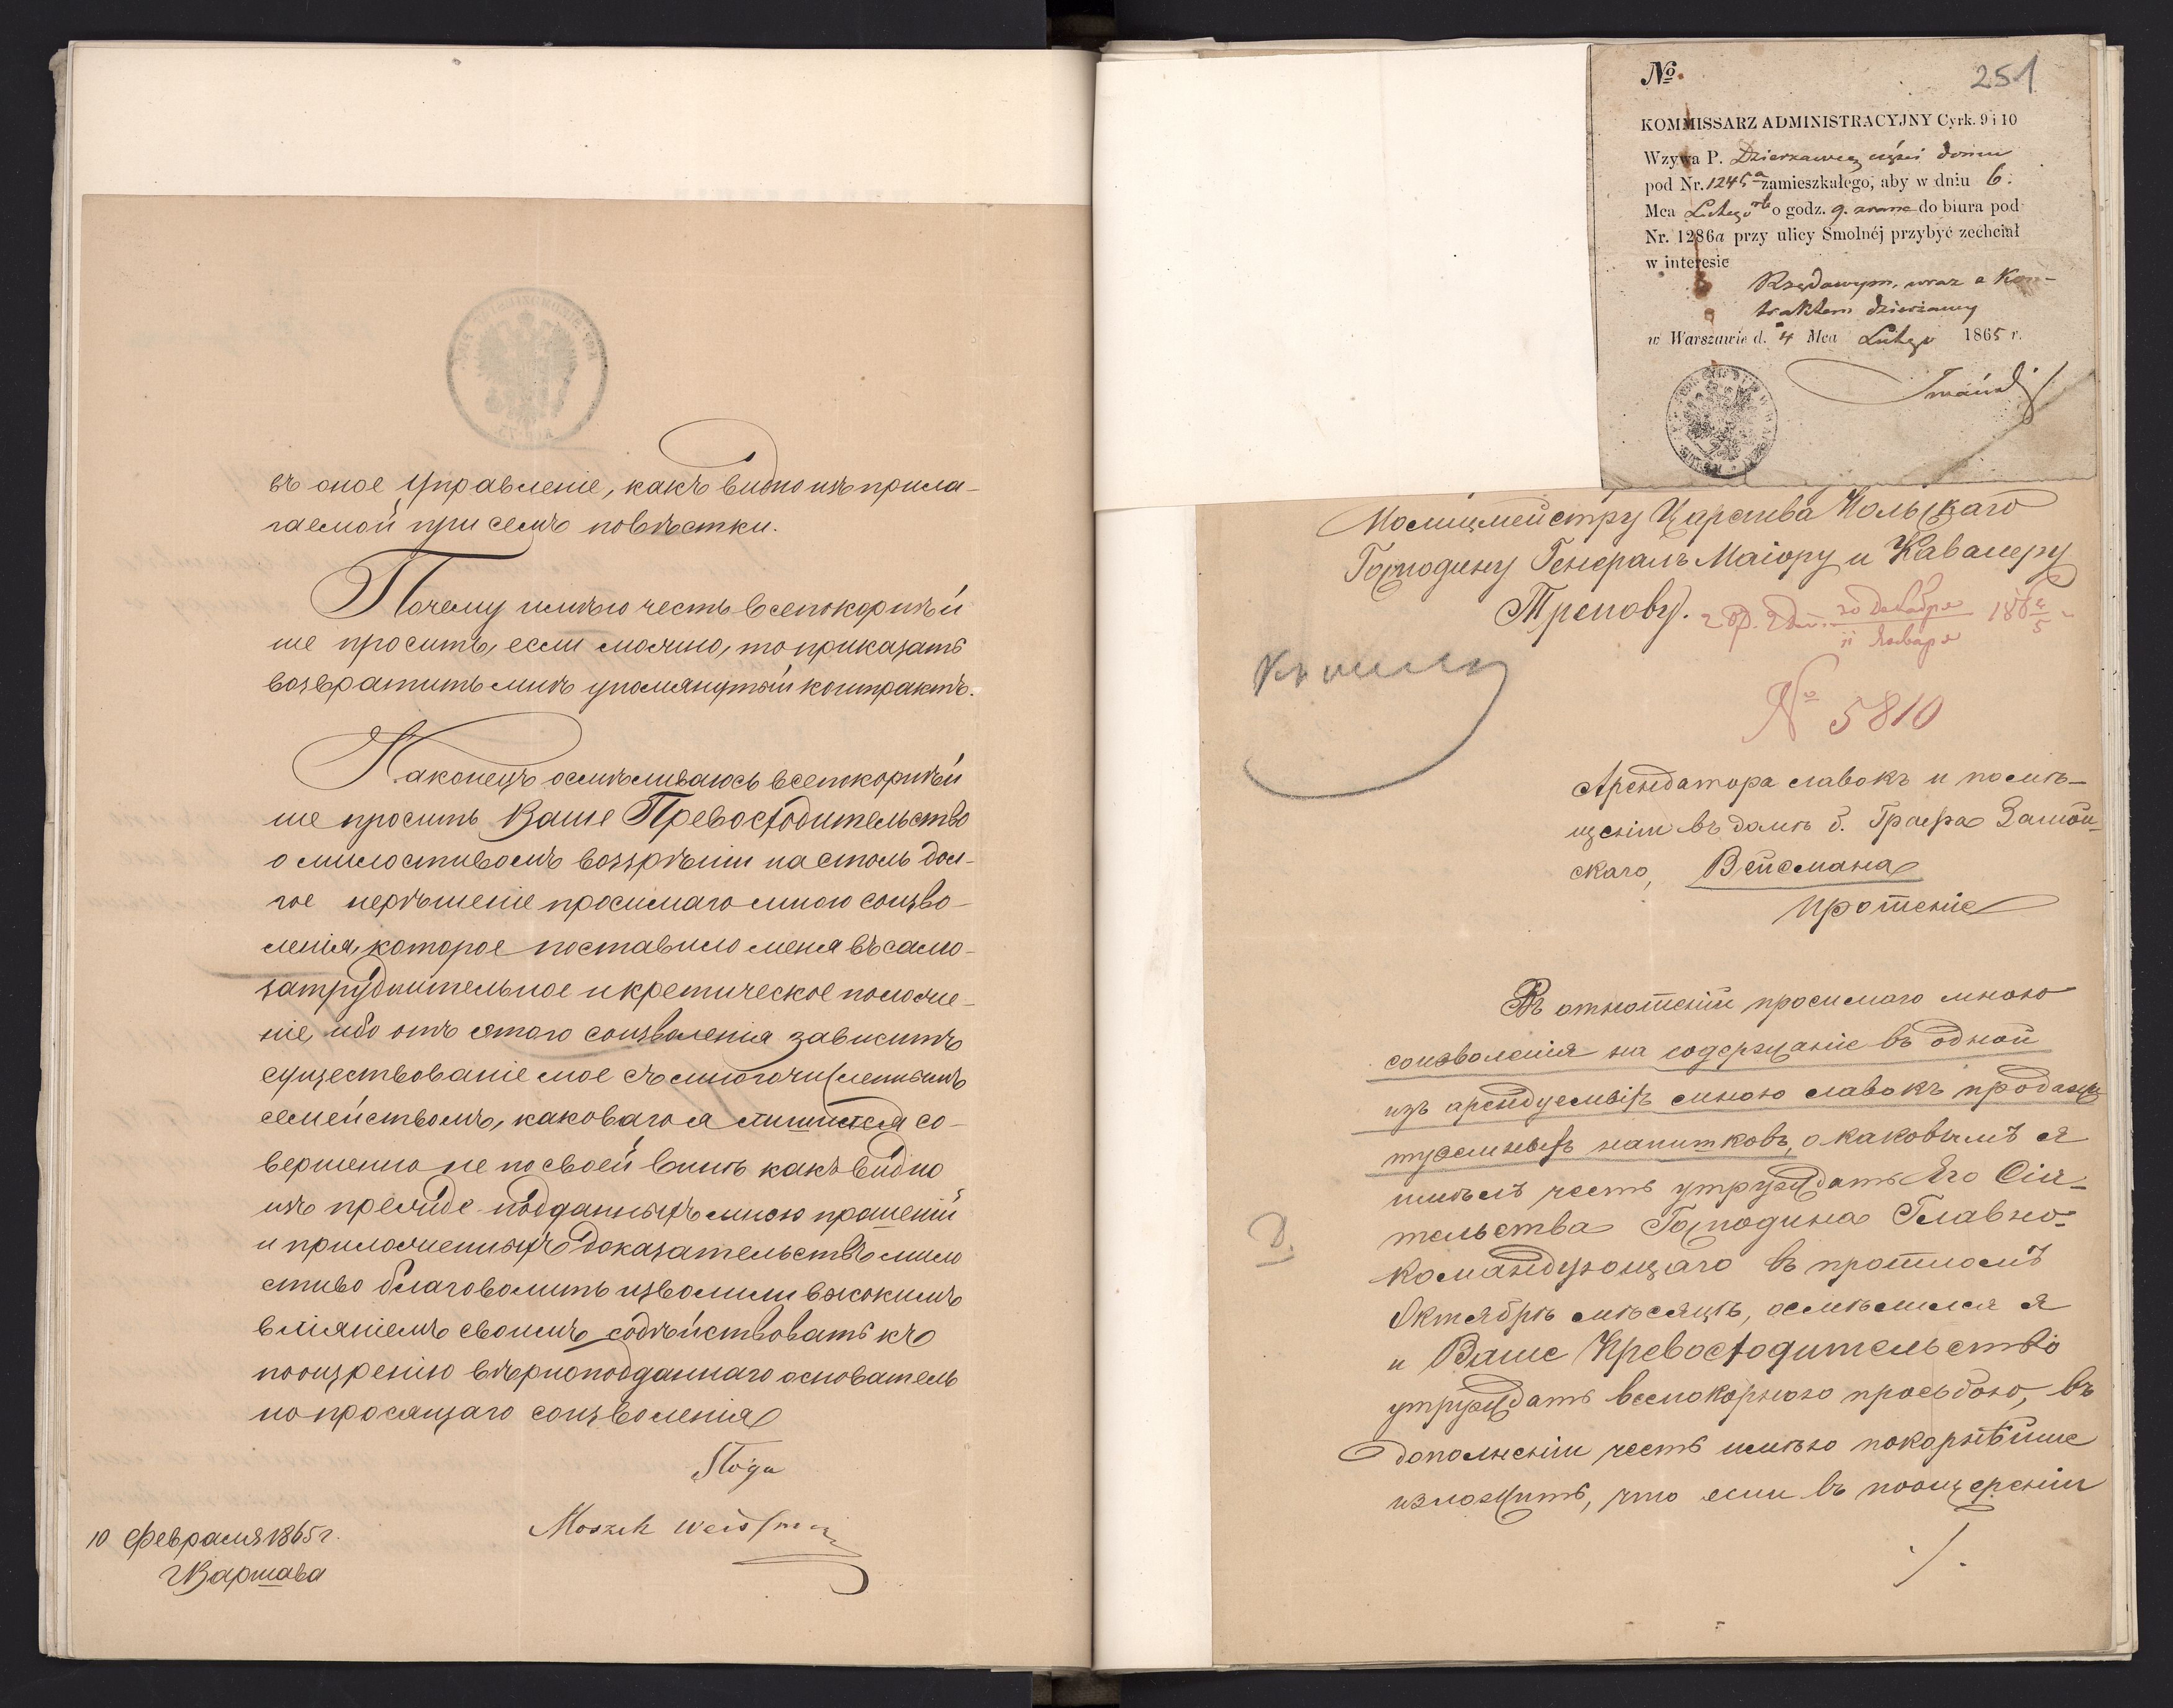 въ оное Управленіе, какъ видно изъ прила-
гаемой при семъ повѣстки.
Почему имѣю честь всепокорнѣй
ше просить, если можно, то приказать
возвратить мнѣ упомянутый контрактъ.
Наконецъ осмѣливаюсь всепокорнѣй
ше просить Ваше Превосходительство
о милостивомъ воззрѣніи на столь дол-
гое нерѣшеніе просимаго мною соизво-
ленія, которое поставило меня въ само-
затруднительное и кретическое положе-
ніе, ибо отъ этого соизволенія зависитъ
существованіе мое съ многочисленнымъ
семействомъ, каковаго я лишился со-
вершенно не по своей винѣ какъ видно
изъ прежде поданныхъ мною прошеній
и приложенныхъ доказательствъ мило
стиво благоволить изволили высокимъ
вліяніемъ своимъ содѣйствовать къ
поощренію вѣрноподданнаго основатель
но просящаго соизволенія
Moszek Weissman
10 Февраля 1865 г.
г Варшава
№ 251
KOMMISSARZ ADMINISTRACYJNY Cyrk. 9 i 10
Wzywa P. Dzierzawcę części domu
pod Nr. 1245a zamieszkałego, aby w dniu 6.
Mca Lutego rb o godz. 9. zrana do biura pod
Nr. 1286a przy ulicy Smolnéj przybyć zechciał
w interesie
Rządowym, wraz z Kon-
traktem dzierżawy
w Warszawie d. 4 Mca Lutego 1865 r.
Полицмейстру Царства Польскаго
Господину Генералъ Маіору и Кавалеру
Трепову. 30 Декабря 1864/5
11 Января
№ 5810
Арендатора лавокъ и помѣ-
щеніи въ домѣ б. Графа Замой-
скаго, Вейсмана
Прошеніе
Въ отношеніи просимаго мною
соизволенія на содержаніе въ одной
изъ арендуемыхъ мною лавокъ продажи
туземныхъ напитковъ, о каковымъ я
имѣлъ честь утруждать Его Сія-
тельства Господина Главно-
командующаго въ прошломъ
Октябрѣ мѣсяцѣ, осмѣлился я
и Ваше Превосходительство
утруждать всепокорною просьбою, въ
дополненіи честь имѣю покорнѣйше
изложить, что если въ поощереніи
./.